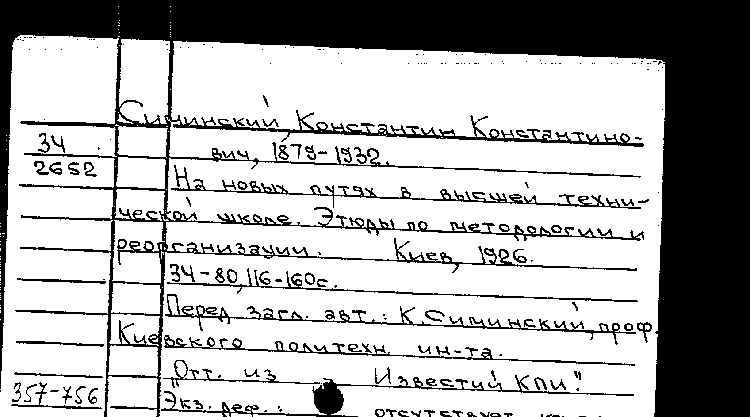 Симинский, Константин Константино-
34 вич, 1879-1932.
2652 На новых путях в высшей техни-
ческой школе. Этюды по методологии и
реорганизации. Киев, 1926.
34-80, 116-160с.
Перед загл. авт.: К.Симинский, проф.
Киевского политехн. ин-та.
"Отт. из Известий КПИ".
357-756 Экз. деф.: отсутствует